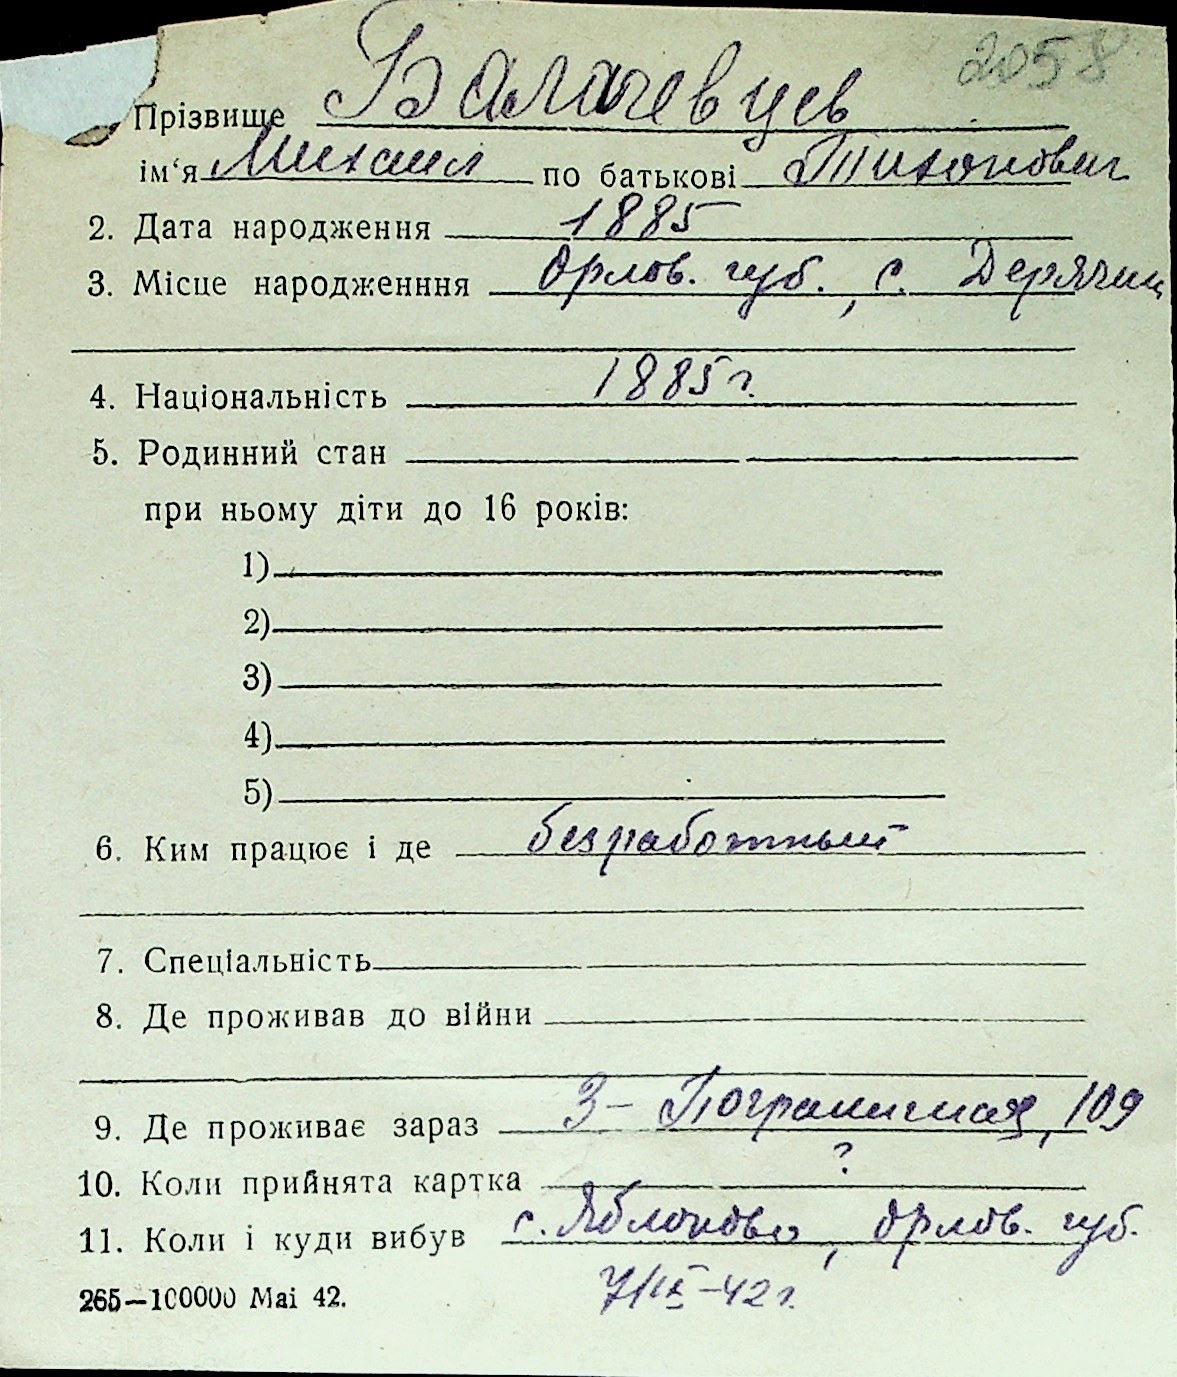 2058
Прізвище Балачевцев
ім‘я Михаил по батькові Тихонович
2. Дата народження 1885
3. Місце народженння Орлов. губ., с.
4. Національність 1885 г.
5. Родинний стан
при ньому діти до 16 років:
1)
2)
3)
4)
5)
6. Ким працює і де безработный
7. Спеціальність
8. Де проживав до війни
9. Де проживає зараз 3 – Пограничная, 109
10. Коли прийнята картка ?
11. Коли і куди вибув с. Яблоново, Орлов. губ.
7/IX–42 г.
265—100000 Mai 42.